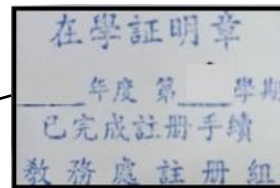 在學証明章
____年度 第____學期
已完成註册手續
教務處註册組